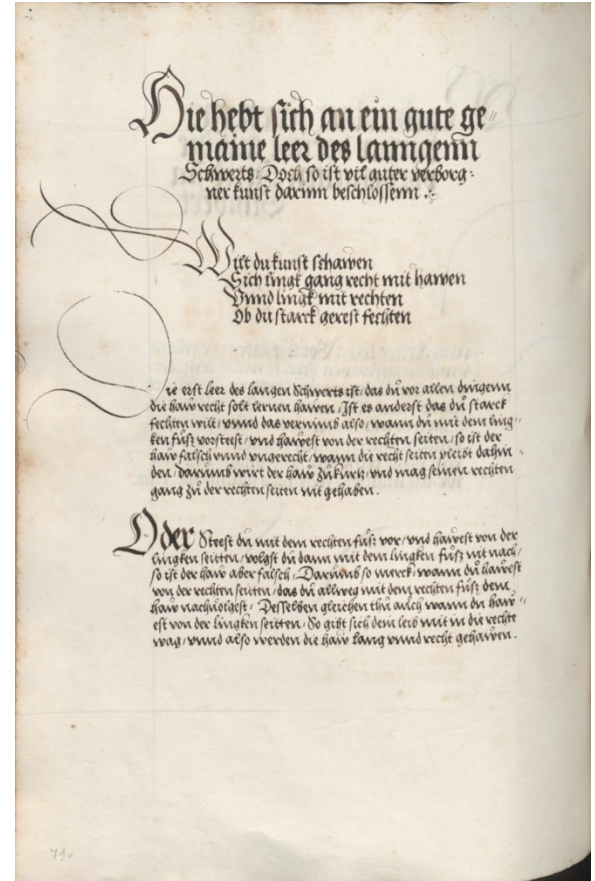 Hie hebt sich an ein gute ge„
maine leer des lanngenn
Schwerts / Doch so ist vil guter verborg„
ner kunst darinn beschlossenn .„.
Wilt du kunst schawen
Sich lingk gang recht mit hawen
Vnnd lingk mit rechten
Ob du starck gerest fechten
Die erst leer des langen Schwerts ist / das dŭ vor allen dingenn
die haw recht solt lernen hawen / Ist es anderst das dŭ starck
fechten wilt / vnnd das vernimb also / wann dŭ mit dem ling„
ken fŭsz vorsteest / vnd hawest von der rechten seiten / so ist der
haw falsch vnnd vngerecht / wann die recht seiten pleibt dahin„
den / darumb wirt der haw zŭ kurtz / vnd mag seinen rechten
gang zŭ der rechten seiten nit gehaben .
Oder Steest dŭ mit dem rechten fŭsz vor / vnd hawest von der
lingken seitten / volgst dŭ dann mit dem lingken fŭsz nit nach /
so ist der haw aber falsch / Darumb so merck / wann dŭ hawest
von der rechten seitten / das dŭ allweg mit dem rechten fŭsz dem
haw nachuolgest / Desselben gleichen thŭ auch wann du haw„
est von der lingken seitten / So gibt sich dein leib mit in die rechte
wag / vnnd also werden die haw lang vnnd recht gehawen .
71v